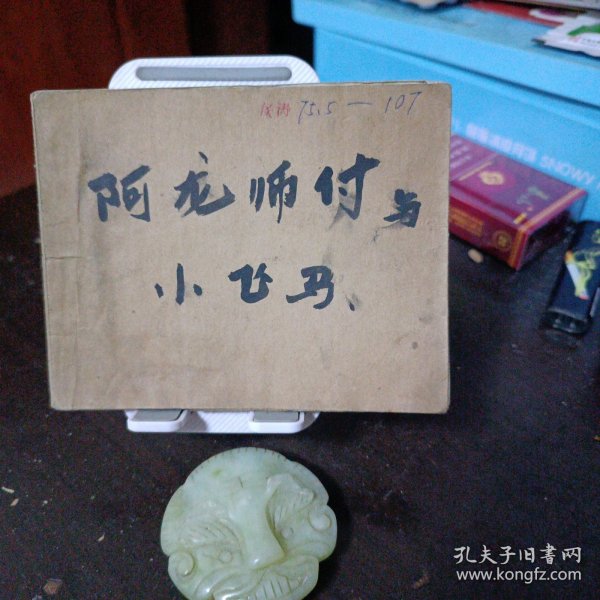 75.5 — 107
阿龙师付与
小飞马、
KNOWN
孔夫子旧書网
www.kongfz.com